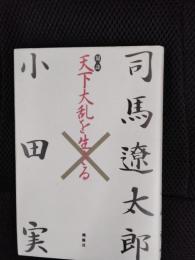 司馬遼太郎
対談
天下大乱を生きる
小田実
潮出版社